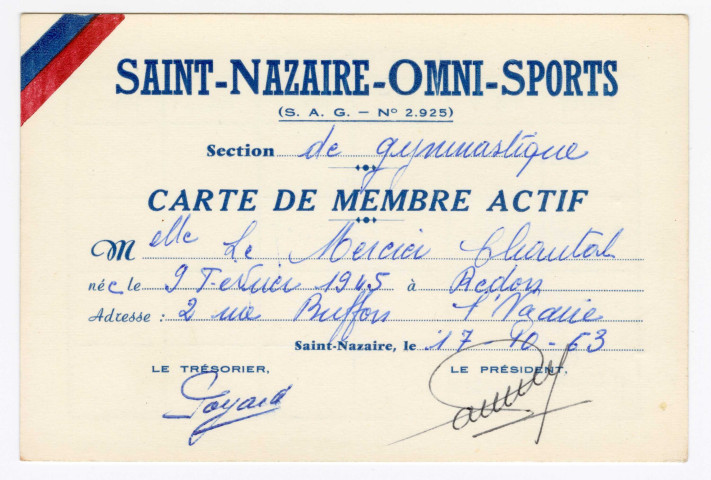 SAINT-NAZAIRE-OMNI-SPORTS
(S. A. G. – N° 2.925)
Section de gymnastique
CARTE DE MEMBRE ACTIF
Melle Le Mercier Chantal
née le 9 Février 1945 à Redon
Adresse : 2 rue Buffon St Nazaire
Saint-Nazaire, le 17-10-63
LE TRÉSORIER, LE PRÉSIDENT,